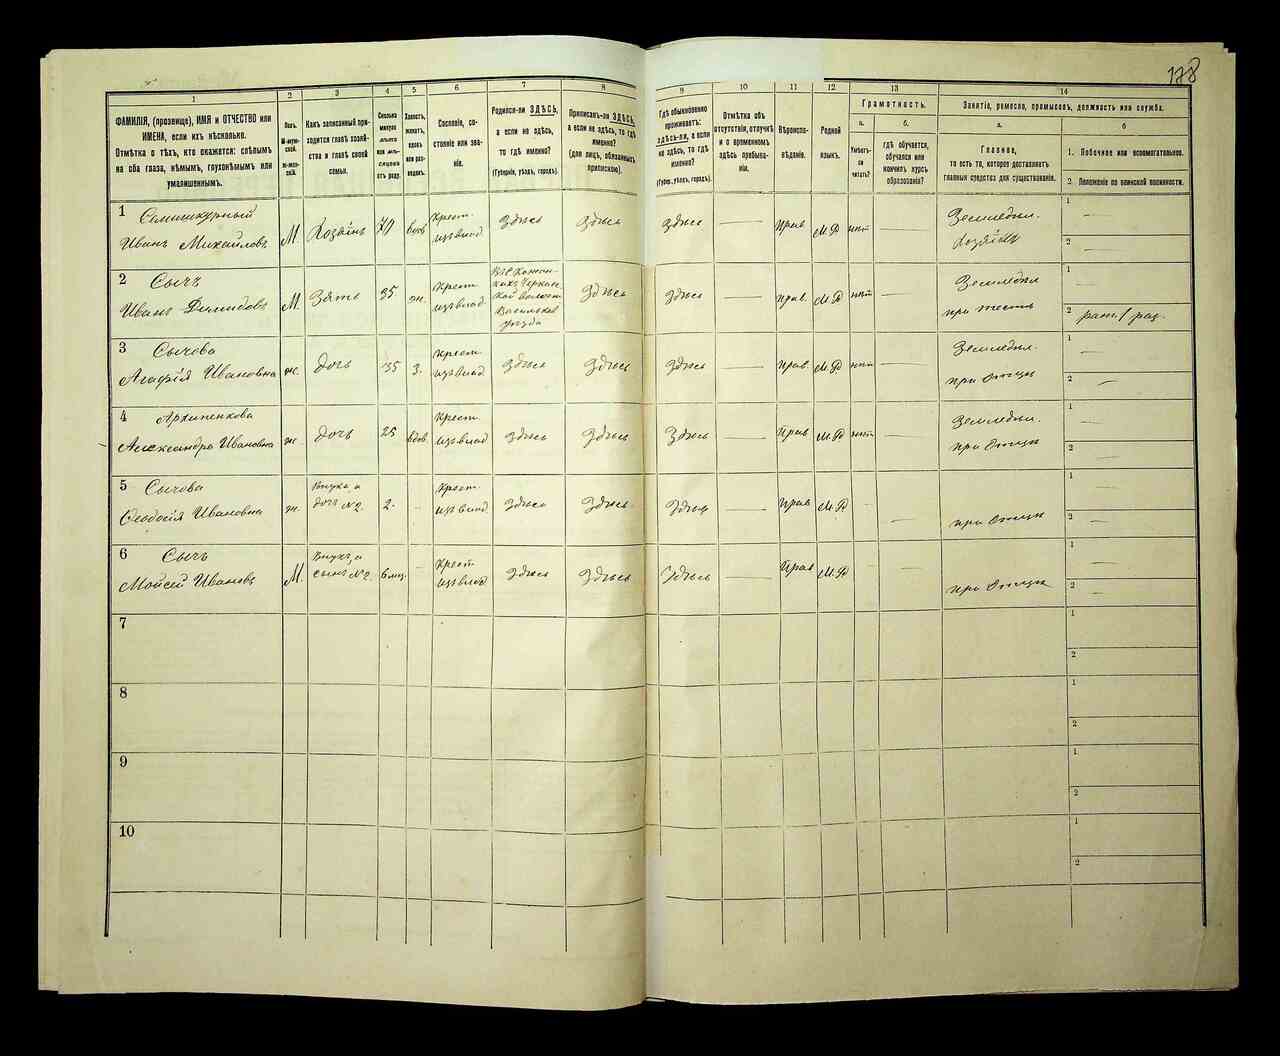 178
1
2
3
4
5
6
7
8
9
10
11
12
13
14
ФАМИЛІЯ, (прозвище), ИМЯ и ОТЧЕСТВО или
ИМЕНА, если ихъ нѣсколько.
Отмѣтка о тѣхъ, кто окажется: слѣпымъ
на оба глаза, нѣмымъ, глухонѣмымъ или
умалишеннымъ.
Полъ.
М-муж-
ской.
ж-жен-
скій.
Какъ записанный при-
ходится главѣ хозяй-
ства и главѣ своей
семьи.
Сколько
минуло
лѣтъ
или мѣ-
сяцевъ
отъ роду.
Холостъ,
женатъ,
вдовъ
или раз-
веденъ.
Сословіе, со-
стояніе или зва-
ніе.
Родился-ли ЗДѢСЬ,
а если не здѣсь,
то гдѣ именно?
(Губернія, уѣздъ, городъ).
Приписанъ-ли ЗДѢСЬ,
а если не здѣсь, то гдѣ
именно?
(для лицъ, обязанныхъ
припискою).
Гдѣ обыкновенно
проживаетъ:
здѣсь-ли, а если
не здѣсь, то гдѣ
именно?
(Губерн., уѣздъ, городъ).
Отмѣтка объ
отсутствіи, отлучкѣ
и о временномъ
здѣсь пребыва-
ніи.
Вѣроиспо-
вѣданіе.
Родной
языкъ.
Грамотность.
а.
б.
Умѣетъ-
ли
читать?
гдѣ обучается,
обучался или
кончилъ курсъ
образованія?
Занятіе, ремесло, промыселъ, должность или служба.
а.
б
Главное,
то есть то, которое доставляетъ
главныя средства для существованія.
1. Побочное или вспомогательное.
2. Положеніе по воинской повинности.
1 Семишкурный
Иванъ Михайловъ М Хозяинъ 70 вдов Крест. изъ влад Здѣсь Здѣсь Здѣсь — Прав М.Р нѣт — Земледѣл. Хозяинъ 1 — 2 —
2 Сычъ
Иванъ Демидовъ М. Зять 35 ж. Крест. изъ влад. Здѣсь Здѣсь — Прав. М.Р нѣт — Земледѣл при тесть 1 — 2 рат. 1 раз.
3 Сычова
Агафія Ивановна ж. дочь 35 З. Крест. изъ влад. Здѣсь Здѣсь Здѣсь — Прав. М.Р нѣт — Земледѣл. при Отцѣ 1 — 2 —
4 Архипенкова
Александра Ивановна ж. дочь 25 вдов. Крест. изъ влад Здѣсь Здѣсь Здѣсь — Прав М.Р нѣт — Земледѣл. при Отцѣ 1 — 2 —
5 Сычова
Ѳеодосія Ивановна ж. Внука, и дочь №2. 2. — Крест. изъ влад. Здѣсь Здѣсь. Здѣсь — Прав М.Р — при Отцѣ 1 — 2 —
6 Сычъ
Мойсей Ивановъ М. Внукъ, и сынъ №2. 6 мц. — Крест изъ влад Здѣсь Здѣсь Здѣсь — Прав М.Р — при Отцѣ 1 — 2 —
7 1 2
8 1 2
9 1 2
10 1 2